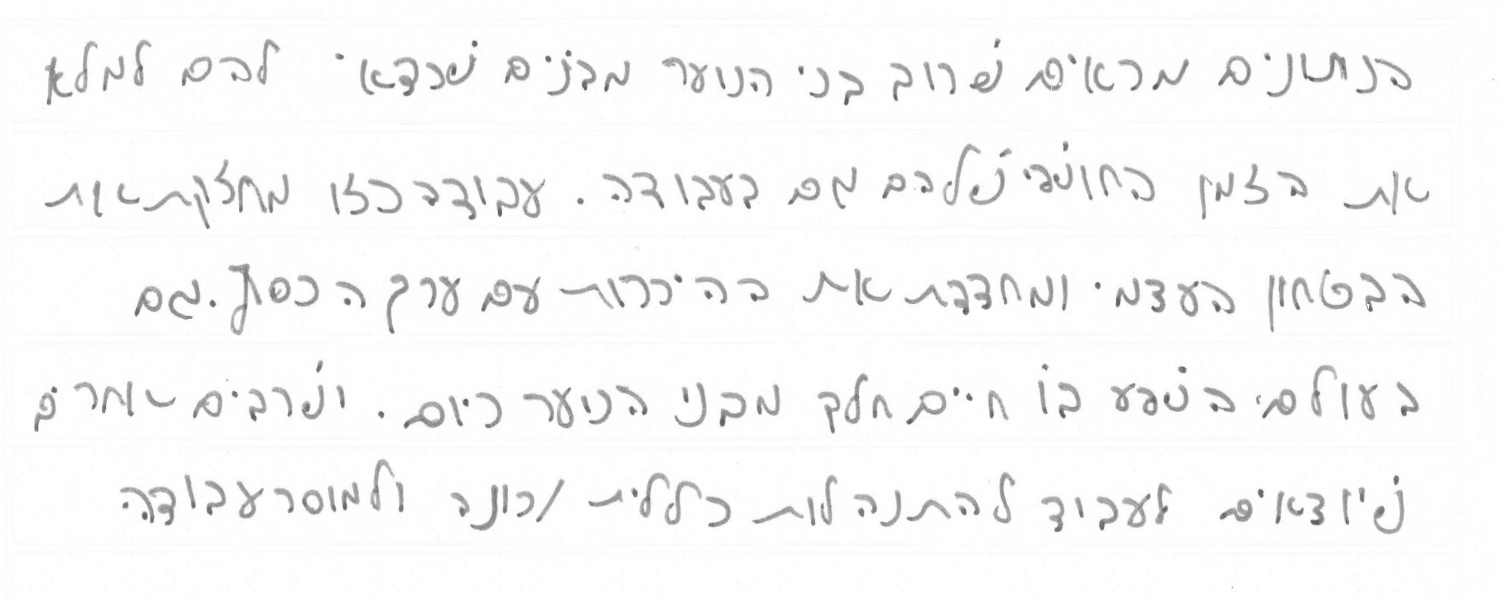 הנתונים מראים שרוב בני הנוער מבינים שכדאי להם למלא
את הזמן החופשי שלהם גם בעבודה. עבודה כזו מחזקת את
הבטחון העצמי ומחדדת את ההיכרות עם ערך הכסף. גם
בעולם השפע בו חיים חלק מבני הנוער כיום. ישרבים אחרים
שיוצאים לעבוד להתנהלות כללית נכונה ולמוסר עבודה